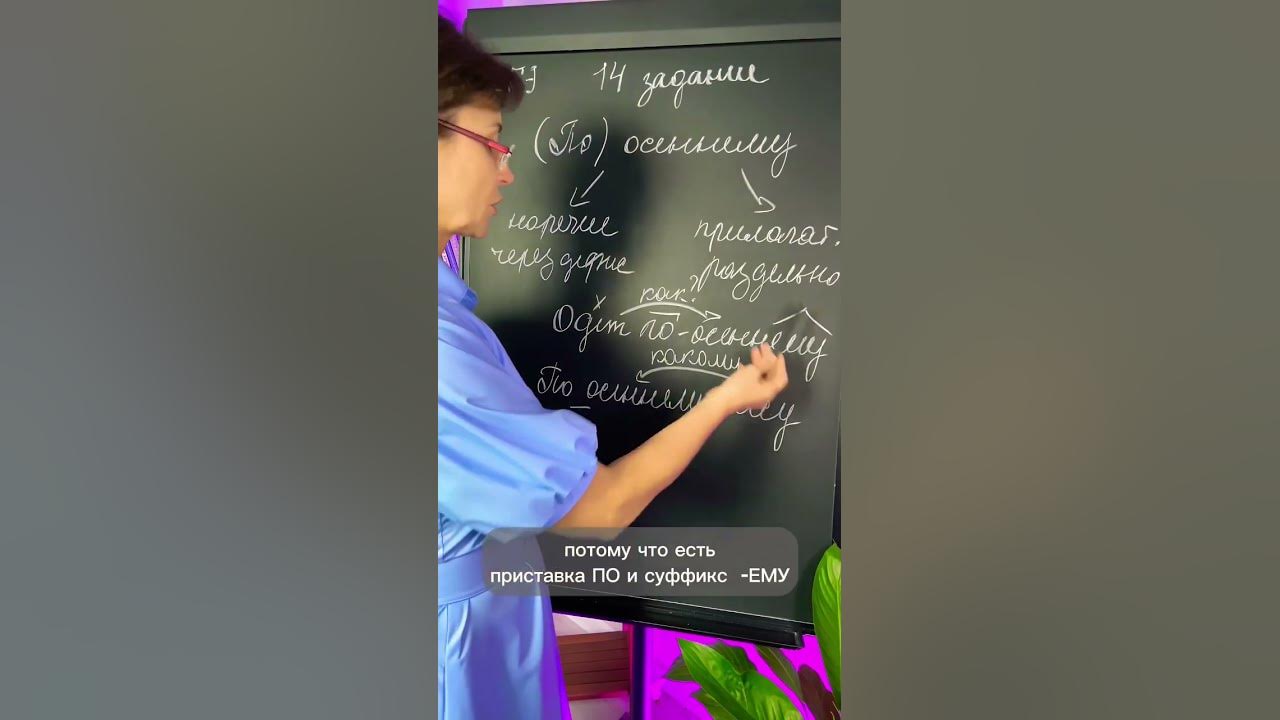 14 задание
(По) осеннему
наречие прилагат.
через дефис раздельно
как?
Одет по-осеннему
каком
По осеннему
потому что есть
приставка ПО и суффикс -ЕМУ